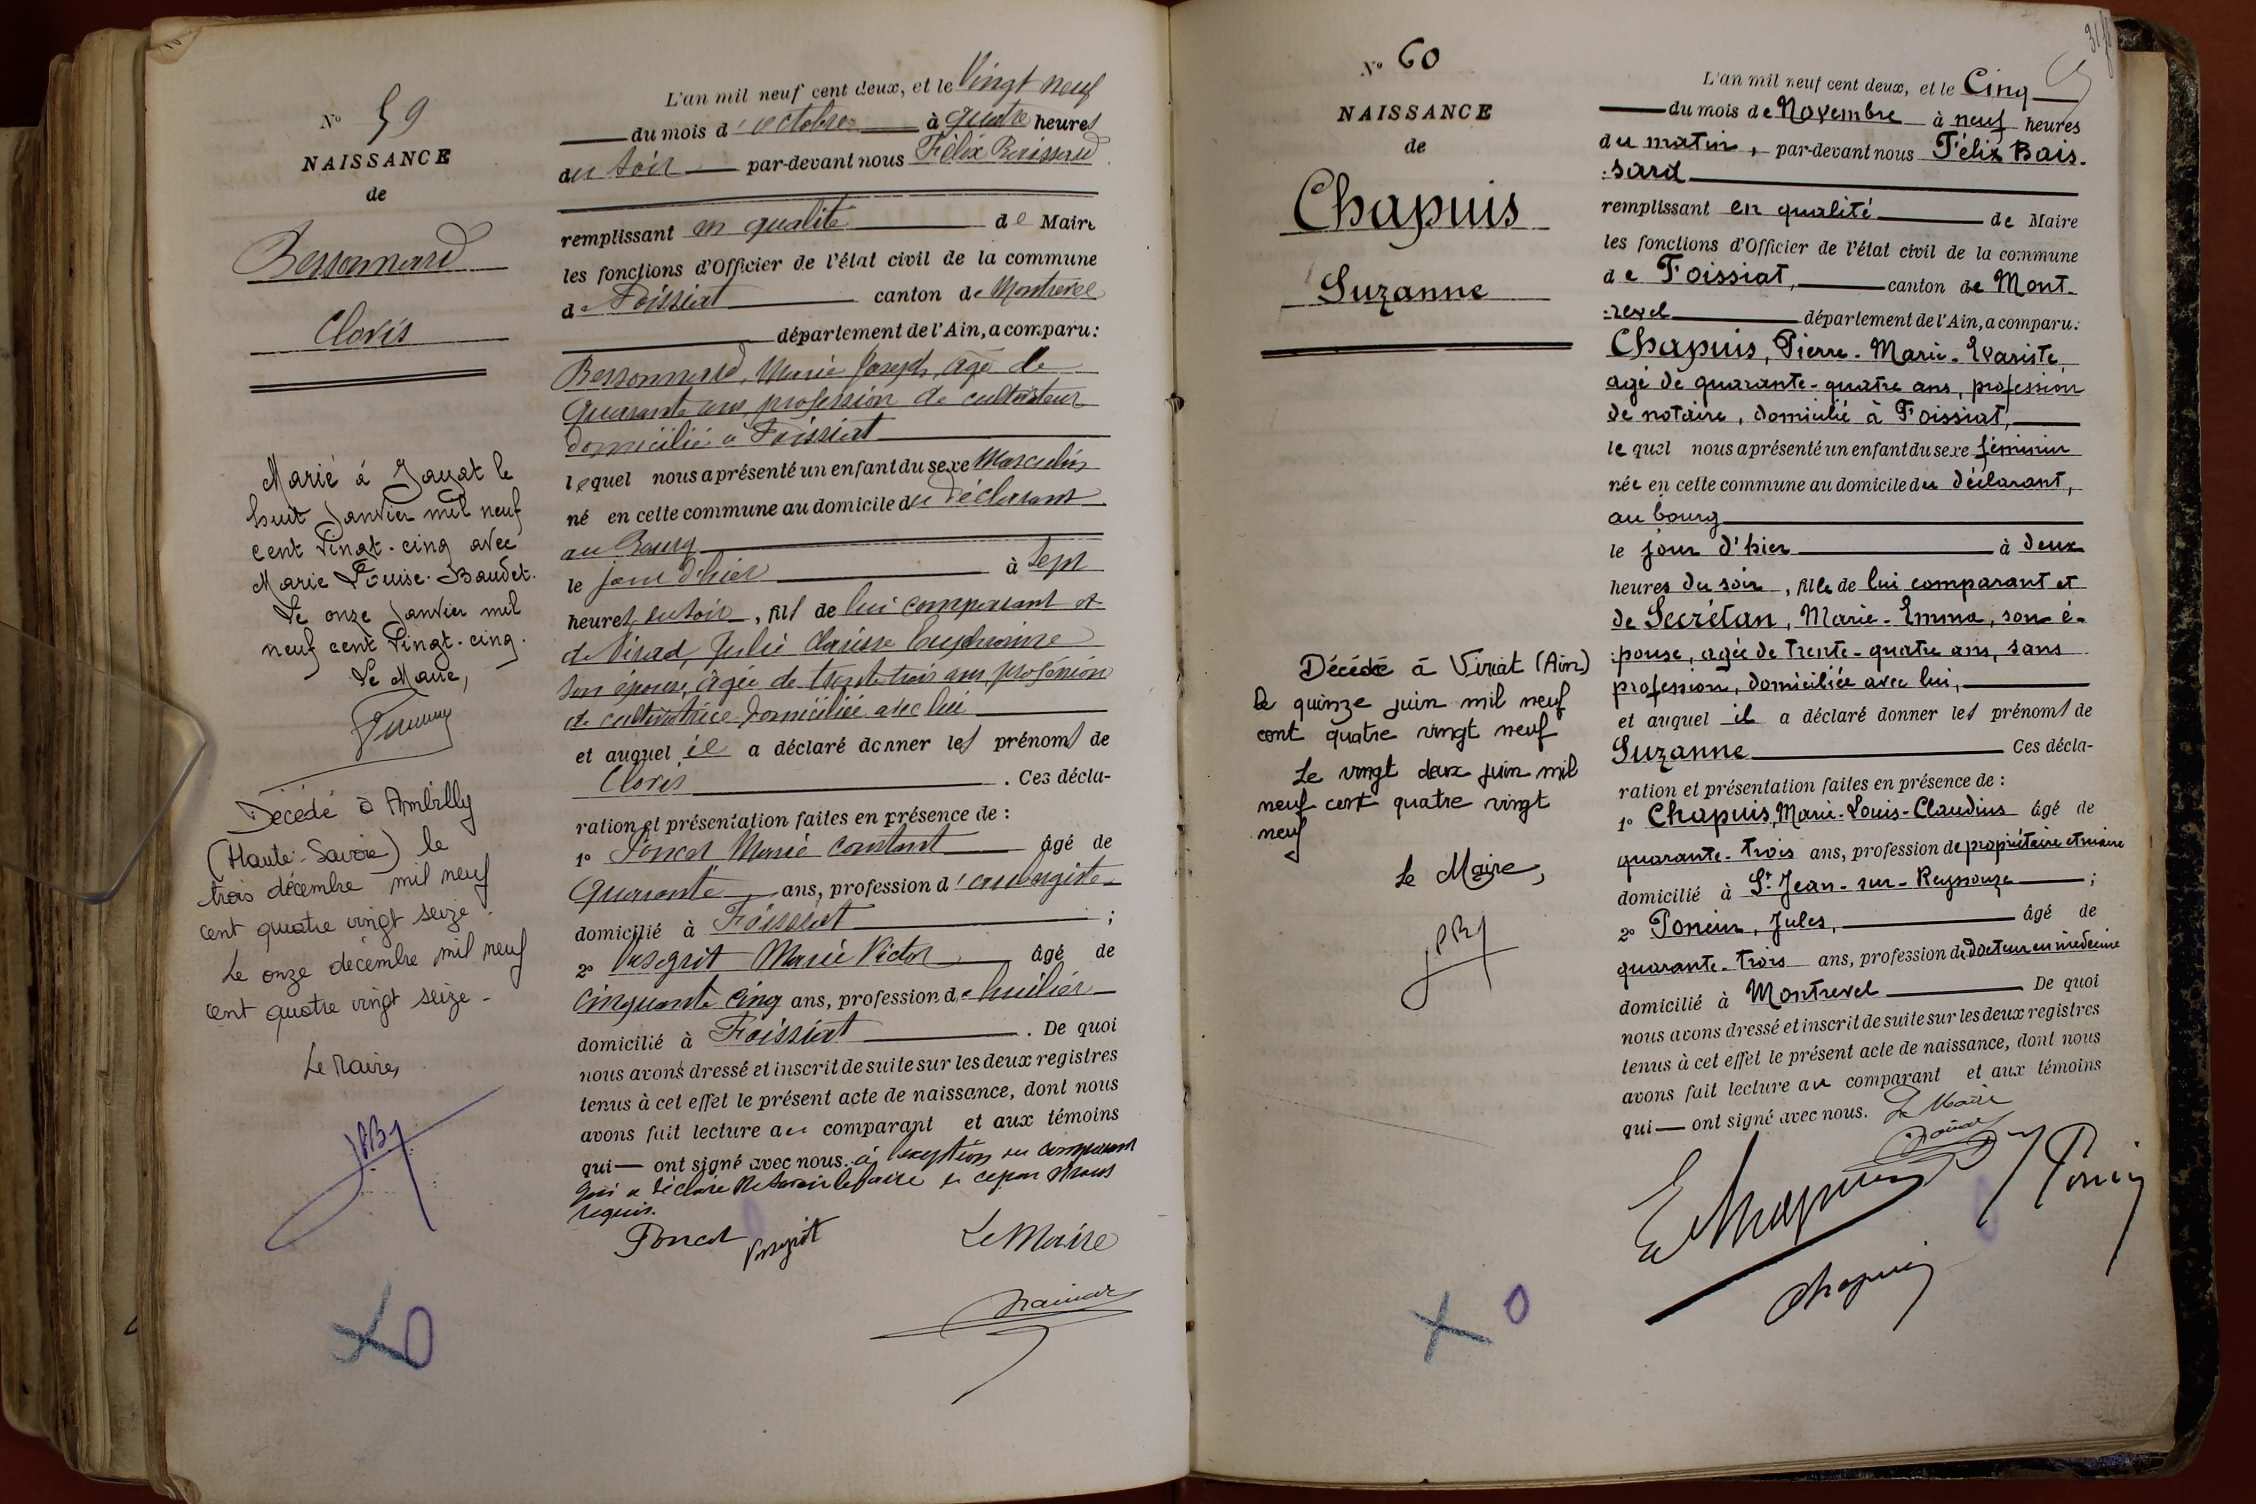 N° 59
NAISSANCE
de
Bessonnard
Clovis
Marié à Jayat le
huit janvier mil neuf
cent vingt-cinq avec
Marie Louise Baudet.
Le onze janvier mil
neuf cent vingt-cinq.
Le Maire,
Décédé à Ambilly
(Haute-Savoie) le
trois décembre mil neuf
cent quatre vingt seize.
Le onze décembre mil neuf
cent quatre vingt seize -
Le Maire,
L'an mil neuf cent deux, et le Vingt neuf
du mois d'octobre à quatre heures
du soir par-devant nous Félix Boissard
remplissant en qualité de Maire
les fonctions d'Officier de l'état civil de la commune
de Foissiat canton de Montrevel
département de l'Ain, a comparu:
Bessonnard, Marie Joseph, âgé de
Quarante ans, profession de cultivateur
domicilié à Foissiat
lequel nous a présenté un enfant du sexe Masculin
né en cette commune au domicile du déclarant
au Bourg
le jour d'hier à sept
heures du soir, fils de lui comparant et
de Julie Clarisse
son épouse, âgée de trente trois ans, profession
de cultivatrice domiciliée avec lui
et auquel il a déclaré donner les prénoms de
Clovis. Ces décla-
ration et présentation faites en présence de :
1° Poncet Marie Constant âgé de
Quarante ans, profession d'aubergiste
domicilié à Foissiat ;
2° Marie Victor âgé de
Cinquante cinq ans, profession d'huilier
domicilié à Foissiat. De quoi
nous avons dressé et inscrit de suite sur les deux registres
tenus à cet effet le présent acte de naissance, dont nous
avons fait lecture au comparant et aux témoins
qui — ont signé avec nous. à l'exception du comparant
qui a déclaré ne savoir le faire de ce par nous
requis.
Poncet
Le Maire
N° 60
NAISSANCE
de
Chapuis
Suzanne
Décédé à Viriat (Ain)
le quinze juin mil neuf
cent quatre vingt neuf
Le vingt deux juin mil
neuf cent quatre vingt
neuf
Le Maire,
L'an mil neuf cent deux, et le Cinq
du mois de Novembre à neuf heures
du matin, par-devant nous Félix Bois-
-sard
remplissant en qualité de Maire
les fonctions d'Officier de l'état civil de la commune
de Foissiat, canton de Mont-
-revel département de l'Ain, a comparu:
Chapuis, Pierre-Marie-Evariste,
agé de quarante-quatre ans, profession
de notaire, domicilié à Foissiat,
lequel nous a présenté un enfant du sexe féminin
née en cette commune au domicile du déclarant,
au bourg
le jour d'hier à deux
heures du soir, fille de lui comparant et
de Secrétan, Marie-Emma, son é-
-pouse, agée de trente-quatre ans, sans
profession, domiciliée avec lui,
et auquel il a déclaré donner les prénoms de
Suzanne Ces décla-
ration et présentation faites en présence de :
1° Chapuis, Marie-Louis-Claudius âgé de
quarante-trois ans, profession de propriétaire et maire
domicilié à St-Jean-sur-Reyssouze ;
2° Poncin, Jules, âgé de
quarante-trois ans, profession de docteur en médecine
domicilié à Montrevel De quoi
nous avons dressé et inscrit de suite sur les deux registres
tenus à cet effet le présent acte de naissance, dont nous
avons fait lecture au comparant et aux témoins
qui — ont signé avec nous. Le Maire
E Chapuis
J Poncin
Chapuis